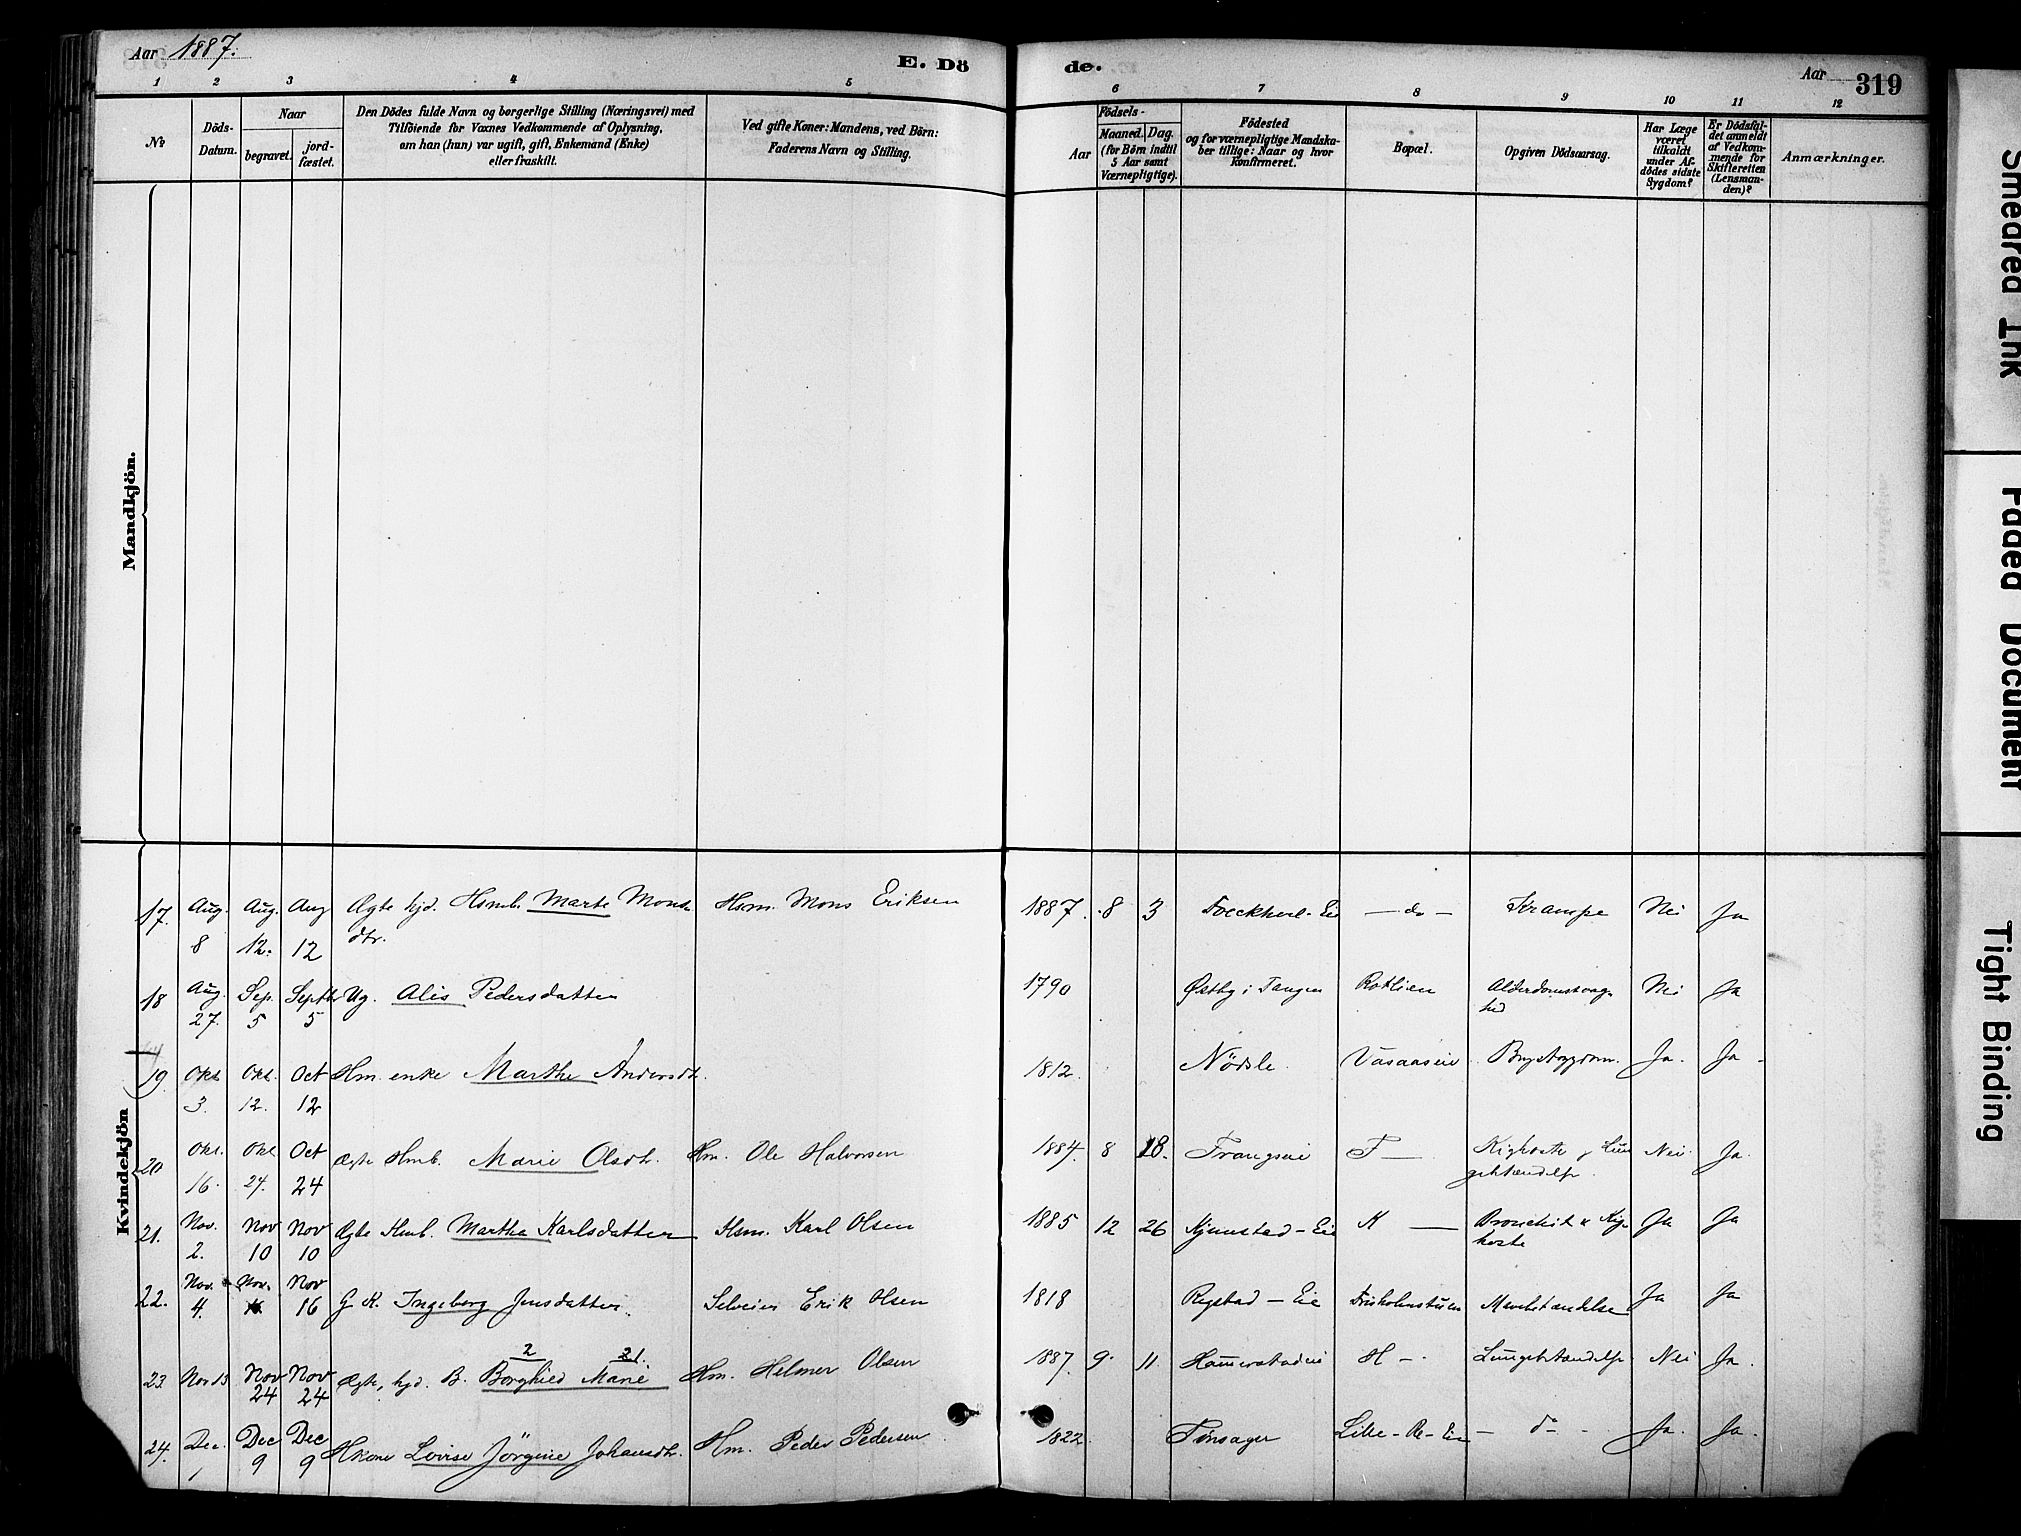 Aar 1887.
E. Dö
de.
Aar
319
1 2 3 4 5 6 7 8 9 10 11 12
No
Döds-Datum.
Naar
begravet.
jord-fæstet.
Den Dödes fulde Navn og borgerlige Stilling (Næringsvei) med
Tilföiende for Voxnes Vedkommende af Oplysning,
om han (hun) var ugift, gift, Enkemand (Enke)
eller fraskilt.
Ved gifte Koner: Mandens, ved Börn:
Faderens Navn og Stilling.
Födsels-
Aar
Maaned. Dag.
(for Börn indtil
5 Aar samt
Værnepligtige).
Födested
og for værnepligtige Mandska-
ber tillige: Naar og hvor
Konfirmeret.
Bopæl.
Opgiven Dödsaarsag.
Har Læge
været
tilkaldt
under Af-
dödes sidste
Sygdom?
Er Dödsfal-
det anmeldt
af Vedkom-
mende for
Skifteretten
(Lensman-
den)?
Anmærkninger.
Mandkjön.
Kvindekjön
17. Aug. 8 Aug. 12. Aug 12 Ægte hjd. Hsmb. Marte Mons dtr. Hsm. Mons Eriksen 1887. 8 3 -do- Krampe Nei Ja
18 Aug. 27. Sep. 5 Septb 5 Ug. Alis Pedersdatter 1790 Østby i Tangen Rotlien Nei Ja
19. Okt 3. Okt. 12. Oct 12 Hm. enke Marthe Andersdtr. 1812. Nödsle Vasaaseie Brystsygdom. Ja. Ja
20 Okt. 16. Okt 24. Oct 24 Ægte Hmb. Marie Olsdtr. Hm. Ole Halvorsen 1884. 8 18. Trangseie T— Kighoste & Lungebetændelse Nei Ja.
21. Nov. 2. Nov 10 Nov 10 Ægte Hmb. Marthea Karlsdatter Hsm. Karl Olsen 1885 12 26 Kjemstad-Eie K— Bronchit & Kighoste Ja Ja
22. Nov. 4. Nov. Nov 16 G. K. Ingeborg Jensdatter. Selveier Erik Olsen 1818 Rogstad-Eie Mavebetændelse Ja Ja
2 21.
23. Nov 13 Nov 24 Nov 24 Ægte, hjd. B. Borghild Marie Hm. Helmer Olsen 1887. 9. 11. Hammerstadeie H-. Lungebetændelse Nei Ja.
24. Dec. 1 Dec 9 Dec 9 Hkone Lovise Jörgine Johansdtr. Hm. Peder Pedersen 1822. Tönsager Lille-Re-Eie -do- Ja. Ja.
Smeared Ink
Faded Document
Tight Binding